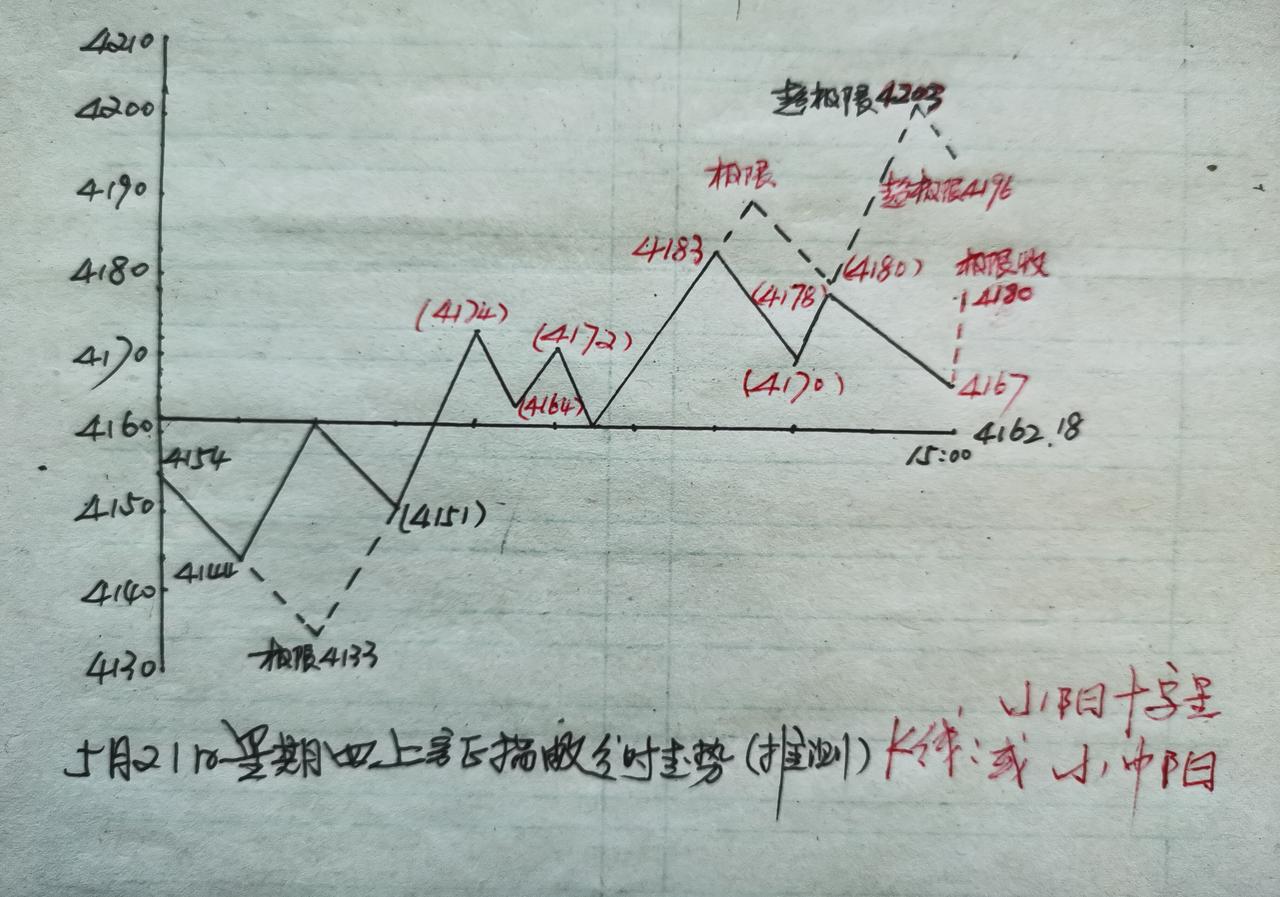 4210
4200
超极限4203
4190
极限
超极限4196
4180
4183
(4180)
极限收
4180
(4178)
(4174)
(4172)
4170
(4170)
4167
(4164)
4160
4162.18
15:00
4154
4150
(4151)
4144
4140
极限4133
4130
小阳十字星
5月21日星期四上证指数分时走势(推测)K线:或 小中阳